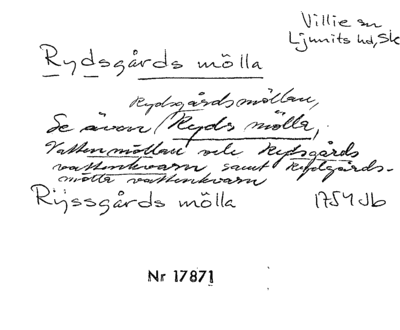 Villie sn
Ljunits hd, Sk
Rydsgårds mölla
Rydsgårdsmöllan,
Se även Ryds mölla,
Vattenmöllan vele Rydsgårds
vattenkvarn, samt Rydsgårds-
mölla vattenkvarn
Rijssgårds mölla 1754 Jb
Nr 17871